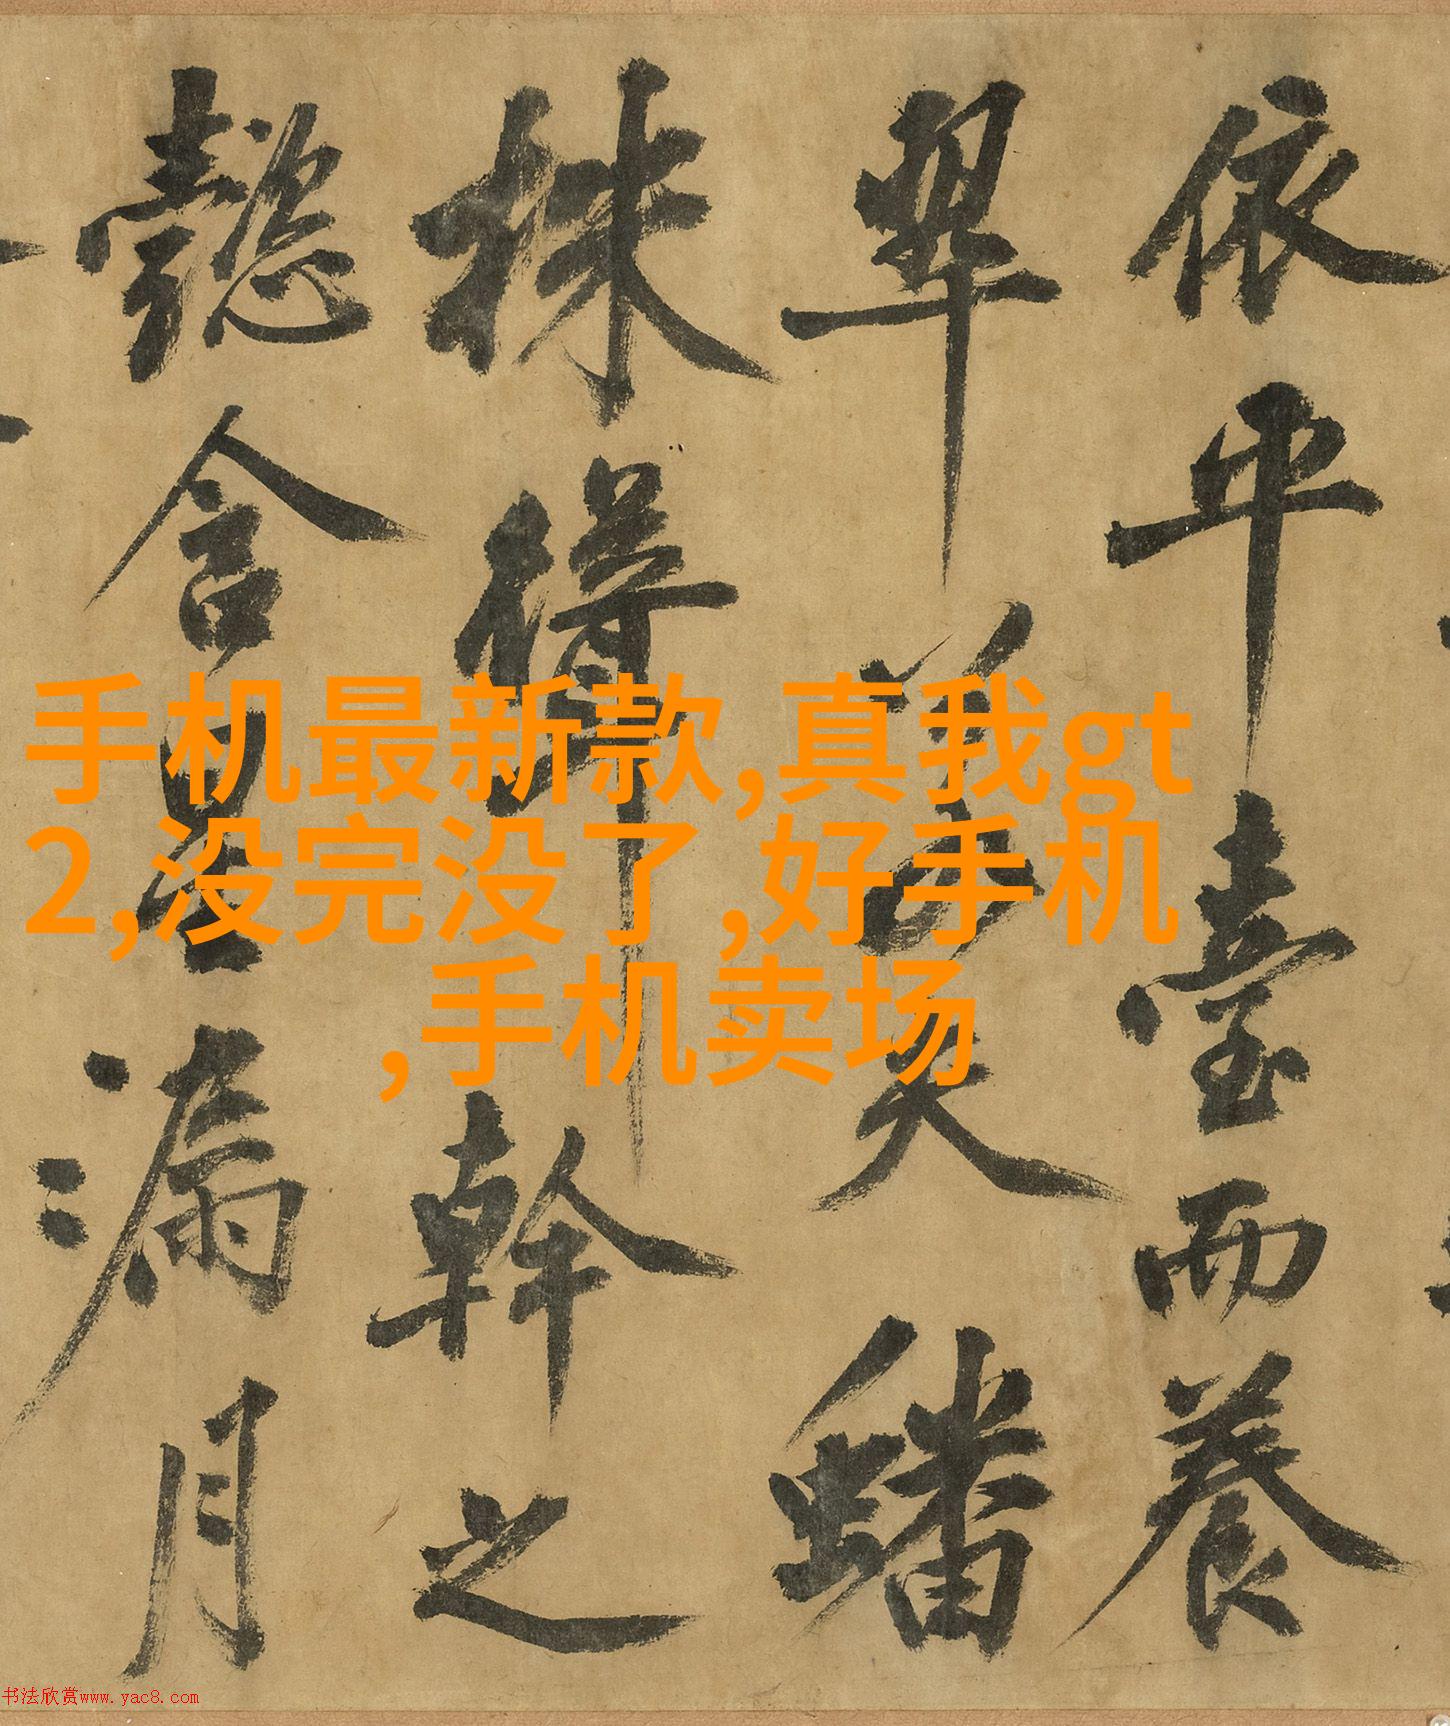 手机最新款,真我gt
2,没完没了,好手机
,手机卖场
依平臺而養
翠天蟠
株幹之
懿含星漏月
书法欣赏www.yac8.com